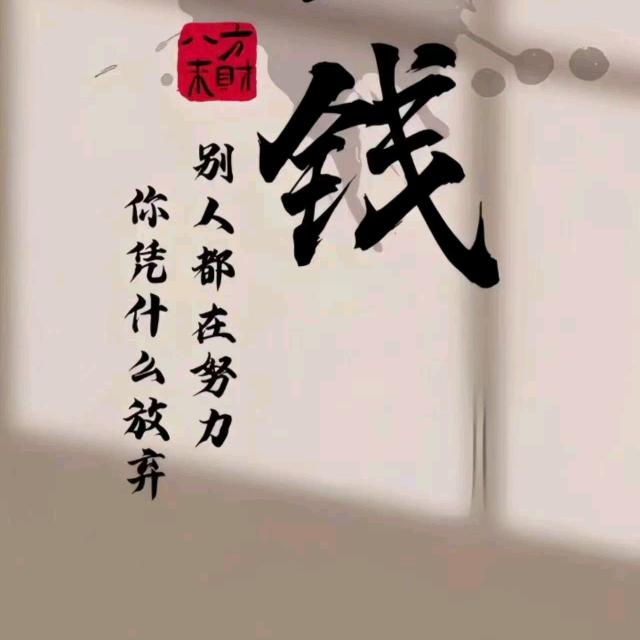 钱
八方
来財
别人都在努力
你凭什么放弃